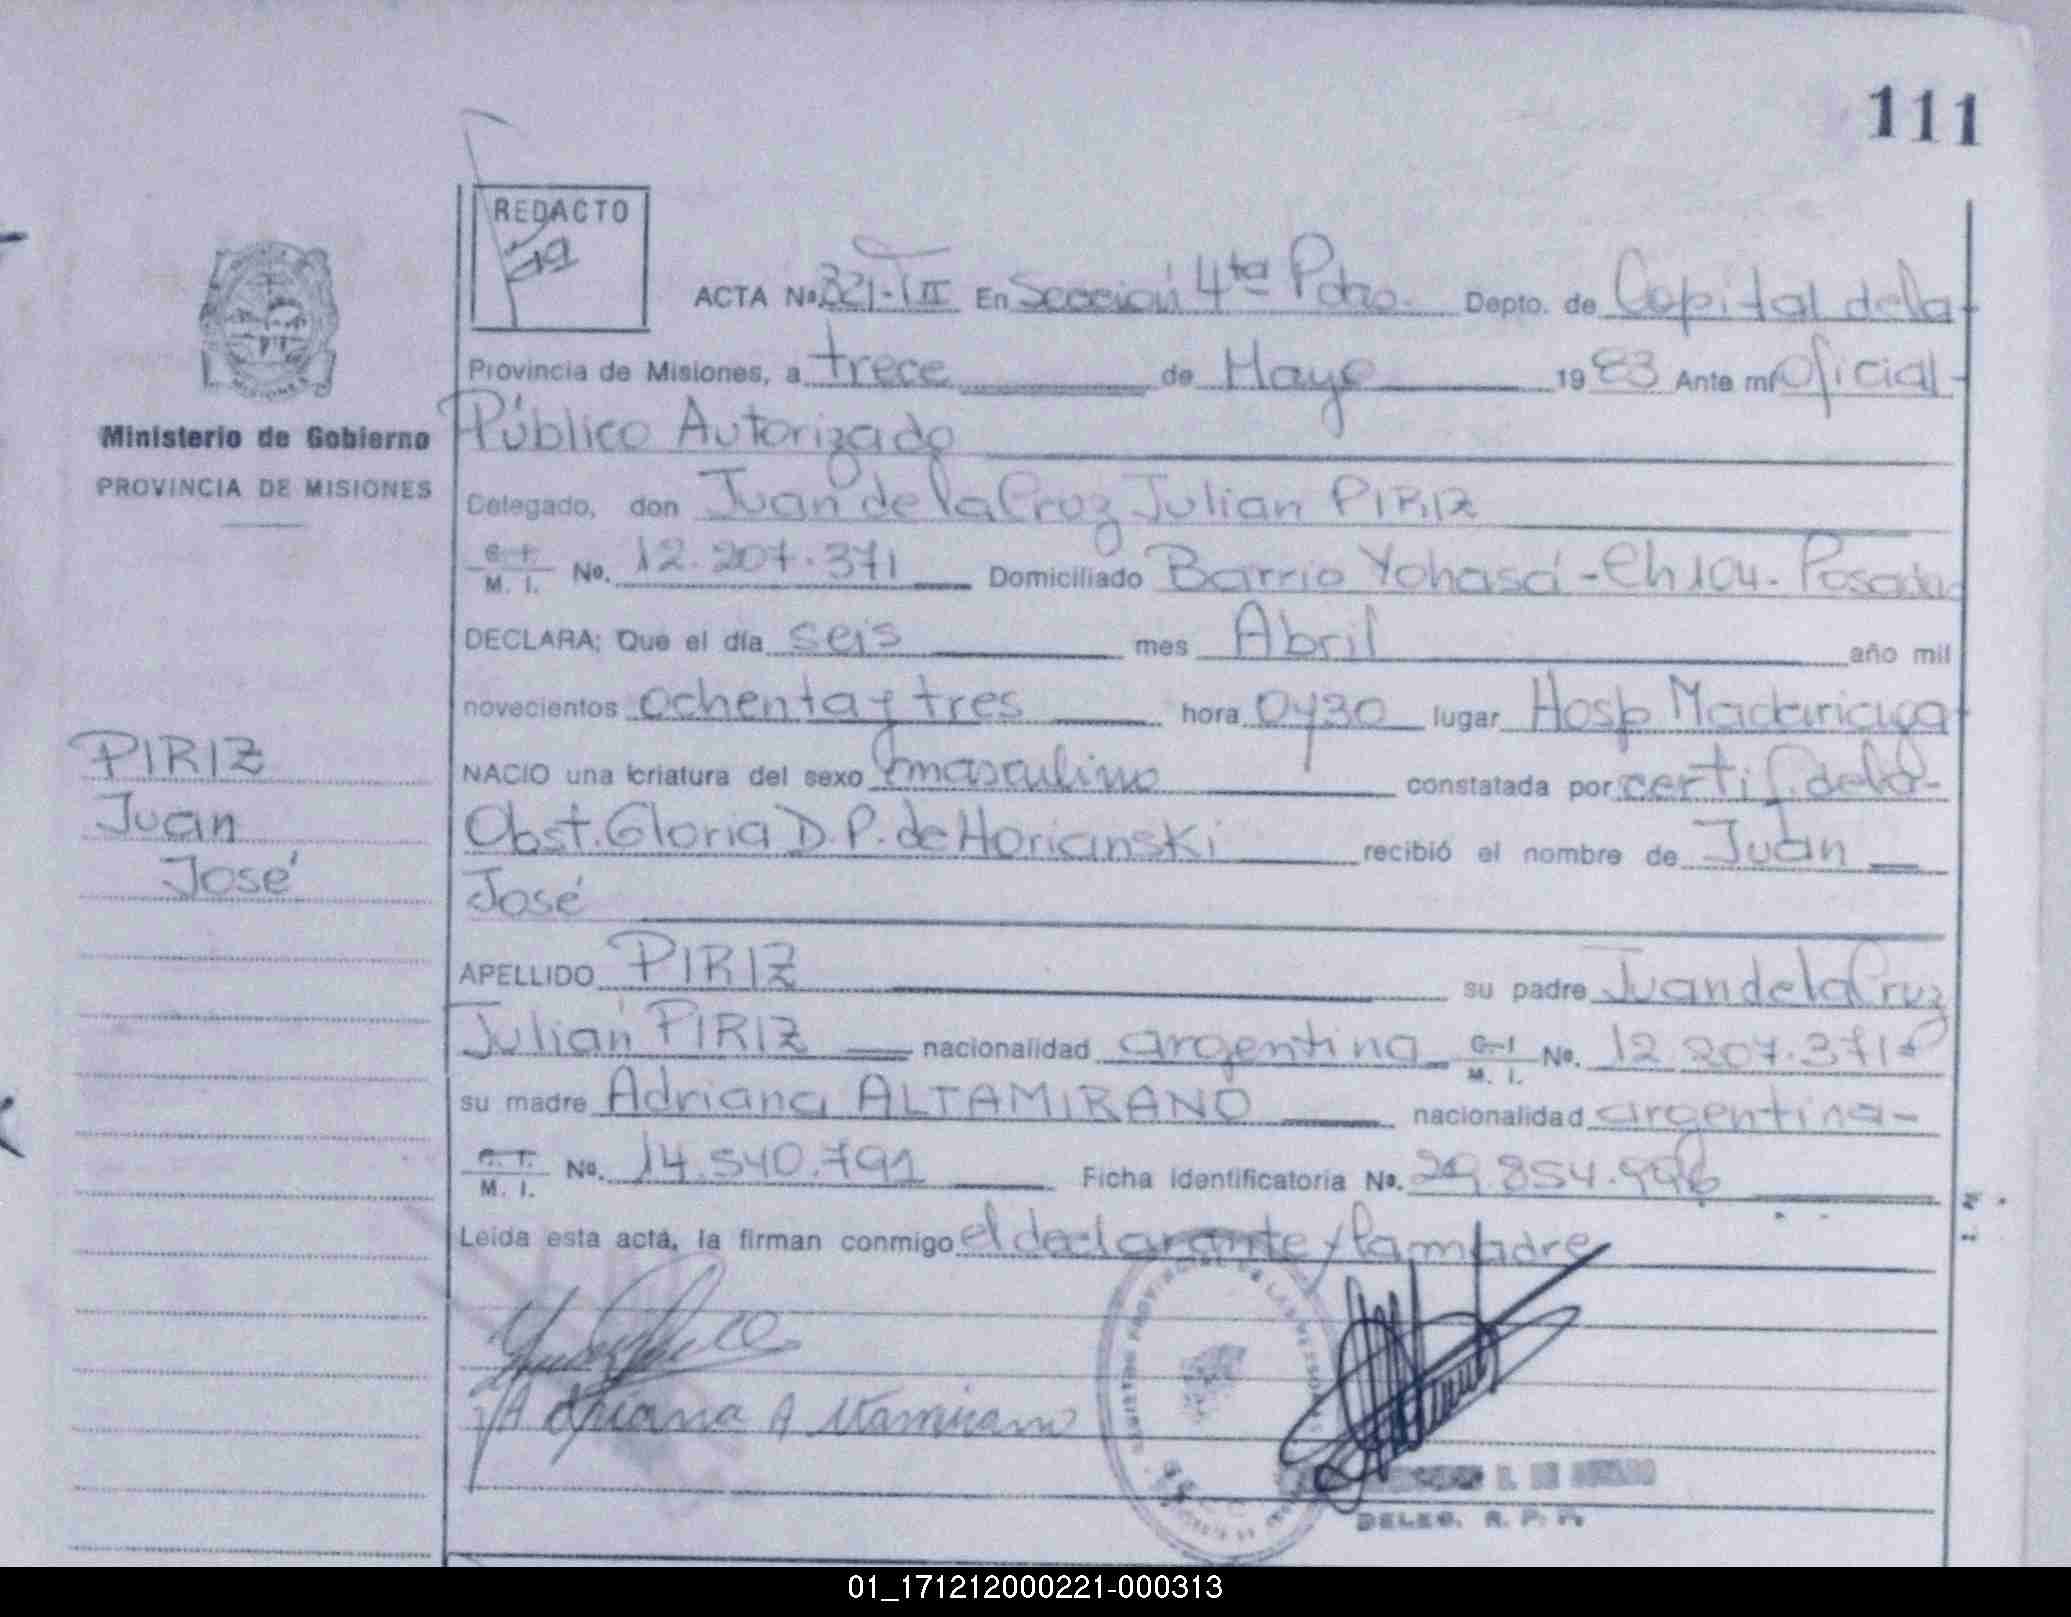 111
REDACTO
ACTA Nº 321-TIII En Sección 4ta Pdas. Depto. de Capital de la
Provincia de Misiones, a trece de Mayo 1983 Ante mí Oficial
Público Autorizado
Ministerio de Gobierno
PROVINCIA DE MISIONES
Delegado, don Juan de la Cruz Julian PIRIZ
C. I.
M. I. No. 12.207.371 Domiciliado Barrio Yohasá - Ch 104 - Posadas
DECLARA; Que el día seis mes Abril año mil
novecientos ochenta y tres hora 0430 lugar Hosp Madariaga
PIRIZ
Juan
José
NACIO una criatura del sexo masculino constatada por certif. de la
Obst. Gloria D. P. de Horianski recibió el nombre de Juan
José
APELLIDO PIRIZ su padre Juan de la Cruz
Julián PIRIZ nacionalidad argentina C. I. M. I. No. 12.207.371
su madre Adriana ALTAMIRANO nacionalidad argentina
C. I.
M. I. No. 14.540.791 Ficha Identificatoria No. 29.854.996
Leída esta acta, la firman conmigo el declarante y la madre
Adriana Altamirano
DELEG. R. P. P.
01_171212000221-000313